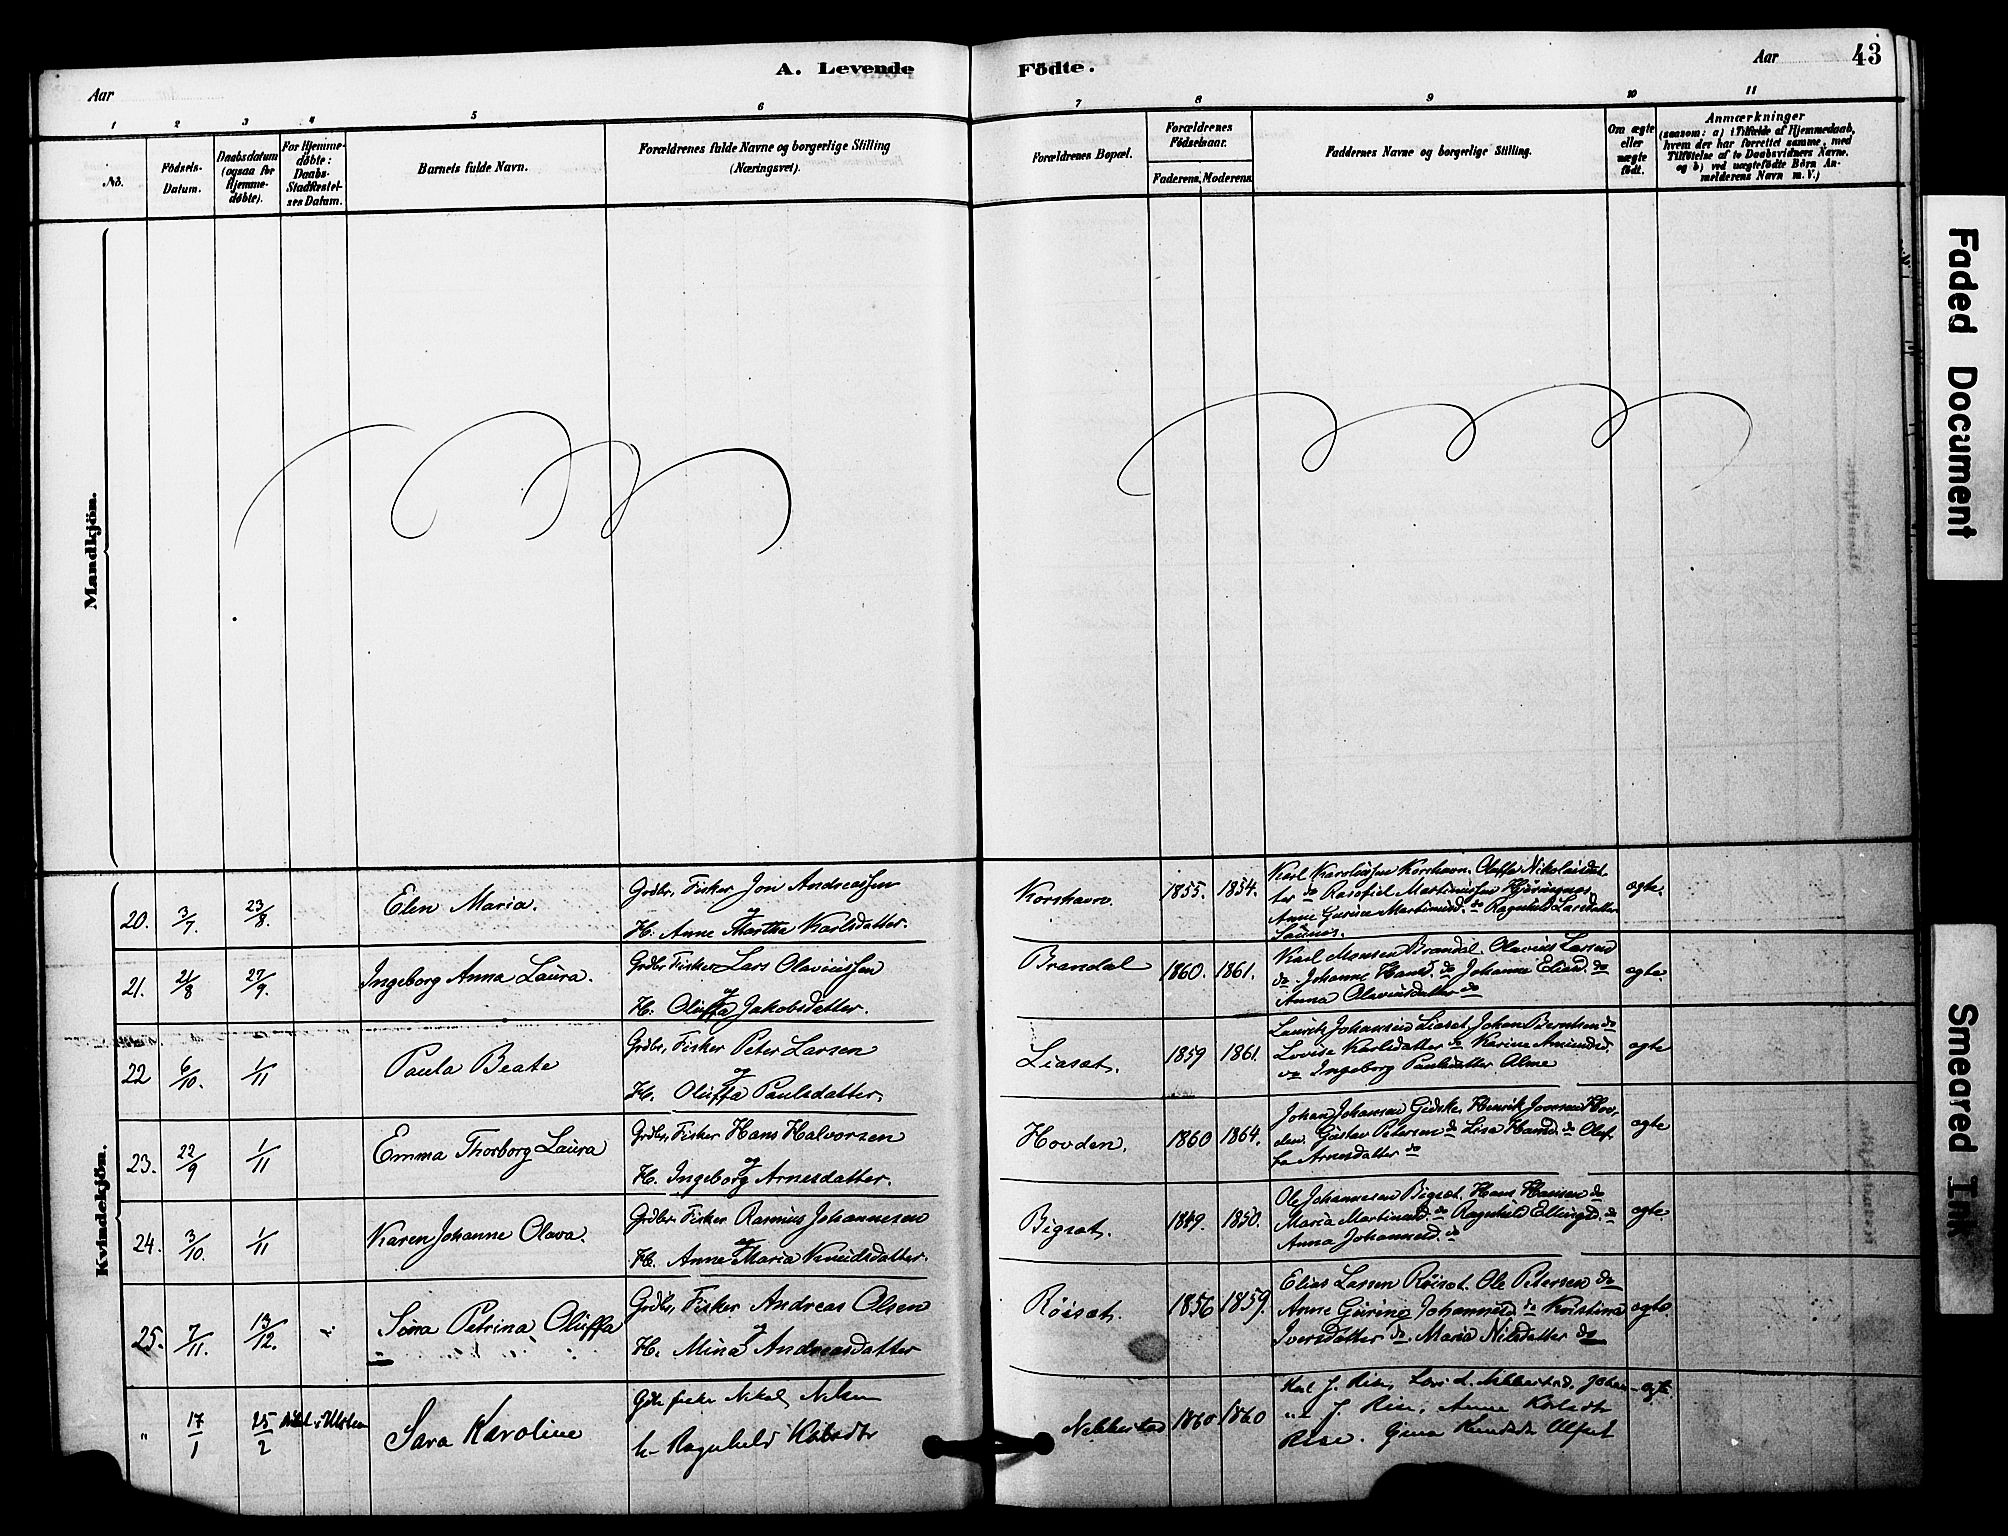 A. Levende Födte.
Aar Aar 43
1 2 3 4 5 6 7 8 9 10 11
No.
Födsels-
Datum.
Daabsdatum
(ogsaa for
Hjemme-
døbte).
For Hjemme-
døbte:
Daabs-
Stadfæstel-
ses Datum.
Barnets fulde Navn.
Forældrenes fulde Navne og borgerlige Stilling
(Næringsvei).
Forældrenes Bopæl.
Forældrenes
Födselsaar.
Faderens. Moderens.
Faddernes Navne og borgerlige Stilling.
Om ægte
eller
uægte
født.
Anmærkninger
(saasom: a) i Tilfælde af Hjemmedaab,
hvem der har forrettet samme, med
Tilføielse af to Daabsvidners Navne.
og b) ved uægtefødte Börn An-
melderens Navn m. V.)
Mandkjön.
Kvindekjön.
20. 3/7. 23/8. Elen Maria.
Grdbr, Fisker Jon Andreassen
og
H. Anne Marthe Karlsdatter.
Korshavn. 1855. 1854.
Karl Karolussen Korshavn. Oluffa Nikolaidat-
ter do Rasmus Martinussen
Anne Gurine Martinusd. do Ragnhild Larsdatter
ægte.
21. 21/8 27/9. Ingeborg Anna Laura.
Grdbr Fisker Lars Olavussen
og
H. Oluffa Jakobsdatter.
Brandal 1860. 1861.
Karl Monsen Brandal. Olavius Larsen
do. Johanne Hansd. do Johanne Eliasd. do
Anna Olavusdatter do
ægte.
22 6/10. 1/11 Paula Beate
Grdbr, Fisker Peter Larsen
og
H. Oluffa Paulsdatter.
Liaset. 1859 1861.
Lauritz Johansen Liaset. Johan Berntsen do
Lovise Karlsdatter do Karine Amundsd.
do Ingeborg Paulsdatter Alme
ægte
23. 22/9 1/11 Emma Thorborg Laura
Grdbr, Fisker Hans Halvorsen
og
H. Ingeborg Arnesdatter.
Hovden. 1860 1864.
Johan Johansen Gidske. Henrik Joensen Hov-
den. Gustav Petersen do Lisa Hansd. do Oluf-
fa Arnesdatter do
ægte
24. 3/10. 1/11 Karen Johanne Olava.
Grdbr. Fisker Rasmus Johannesen
og
H. Anne Maria Knudsdatter.
Bigset. 1849. 1850.
Ole Johannesen Bigset. Hans Hansen do
Maria Martinusd. do Ragnhild Ellingsd. do
Anna Johannesd. do
ægte.
25. 7/11. 13/12. Petrina Oluffa
Grdbr, Fisker Andreas Olsen
og
H. Mina Andreasdatter
Röiset. 1856 1859.
Elias Larsen Röiset. Ole Petersen do
Anne Guring Johannesd. do Kristina
Iversdatter do. Maria Nilsdatter do
ægte.
" 17/1 25/2 Ulstein Sara Karoline
Nikol Nilsen
Ragnhild
1860 1860
Karl J. Rise, Lars L. Nebbestad, Johan-
J. Rise, Anne
Rise. Gina
Faded Document
Smeared Ink